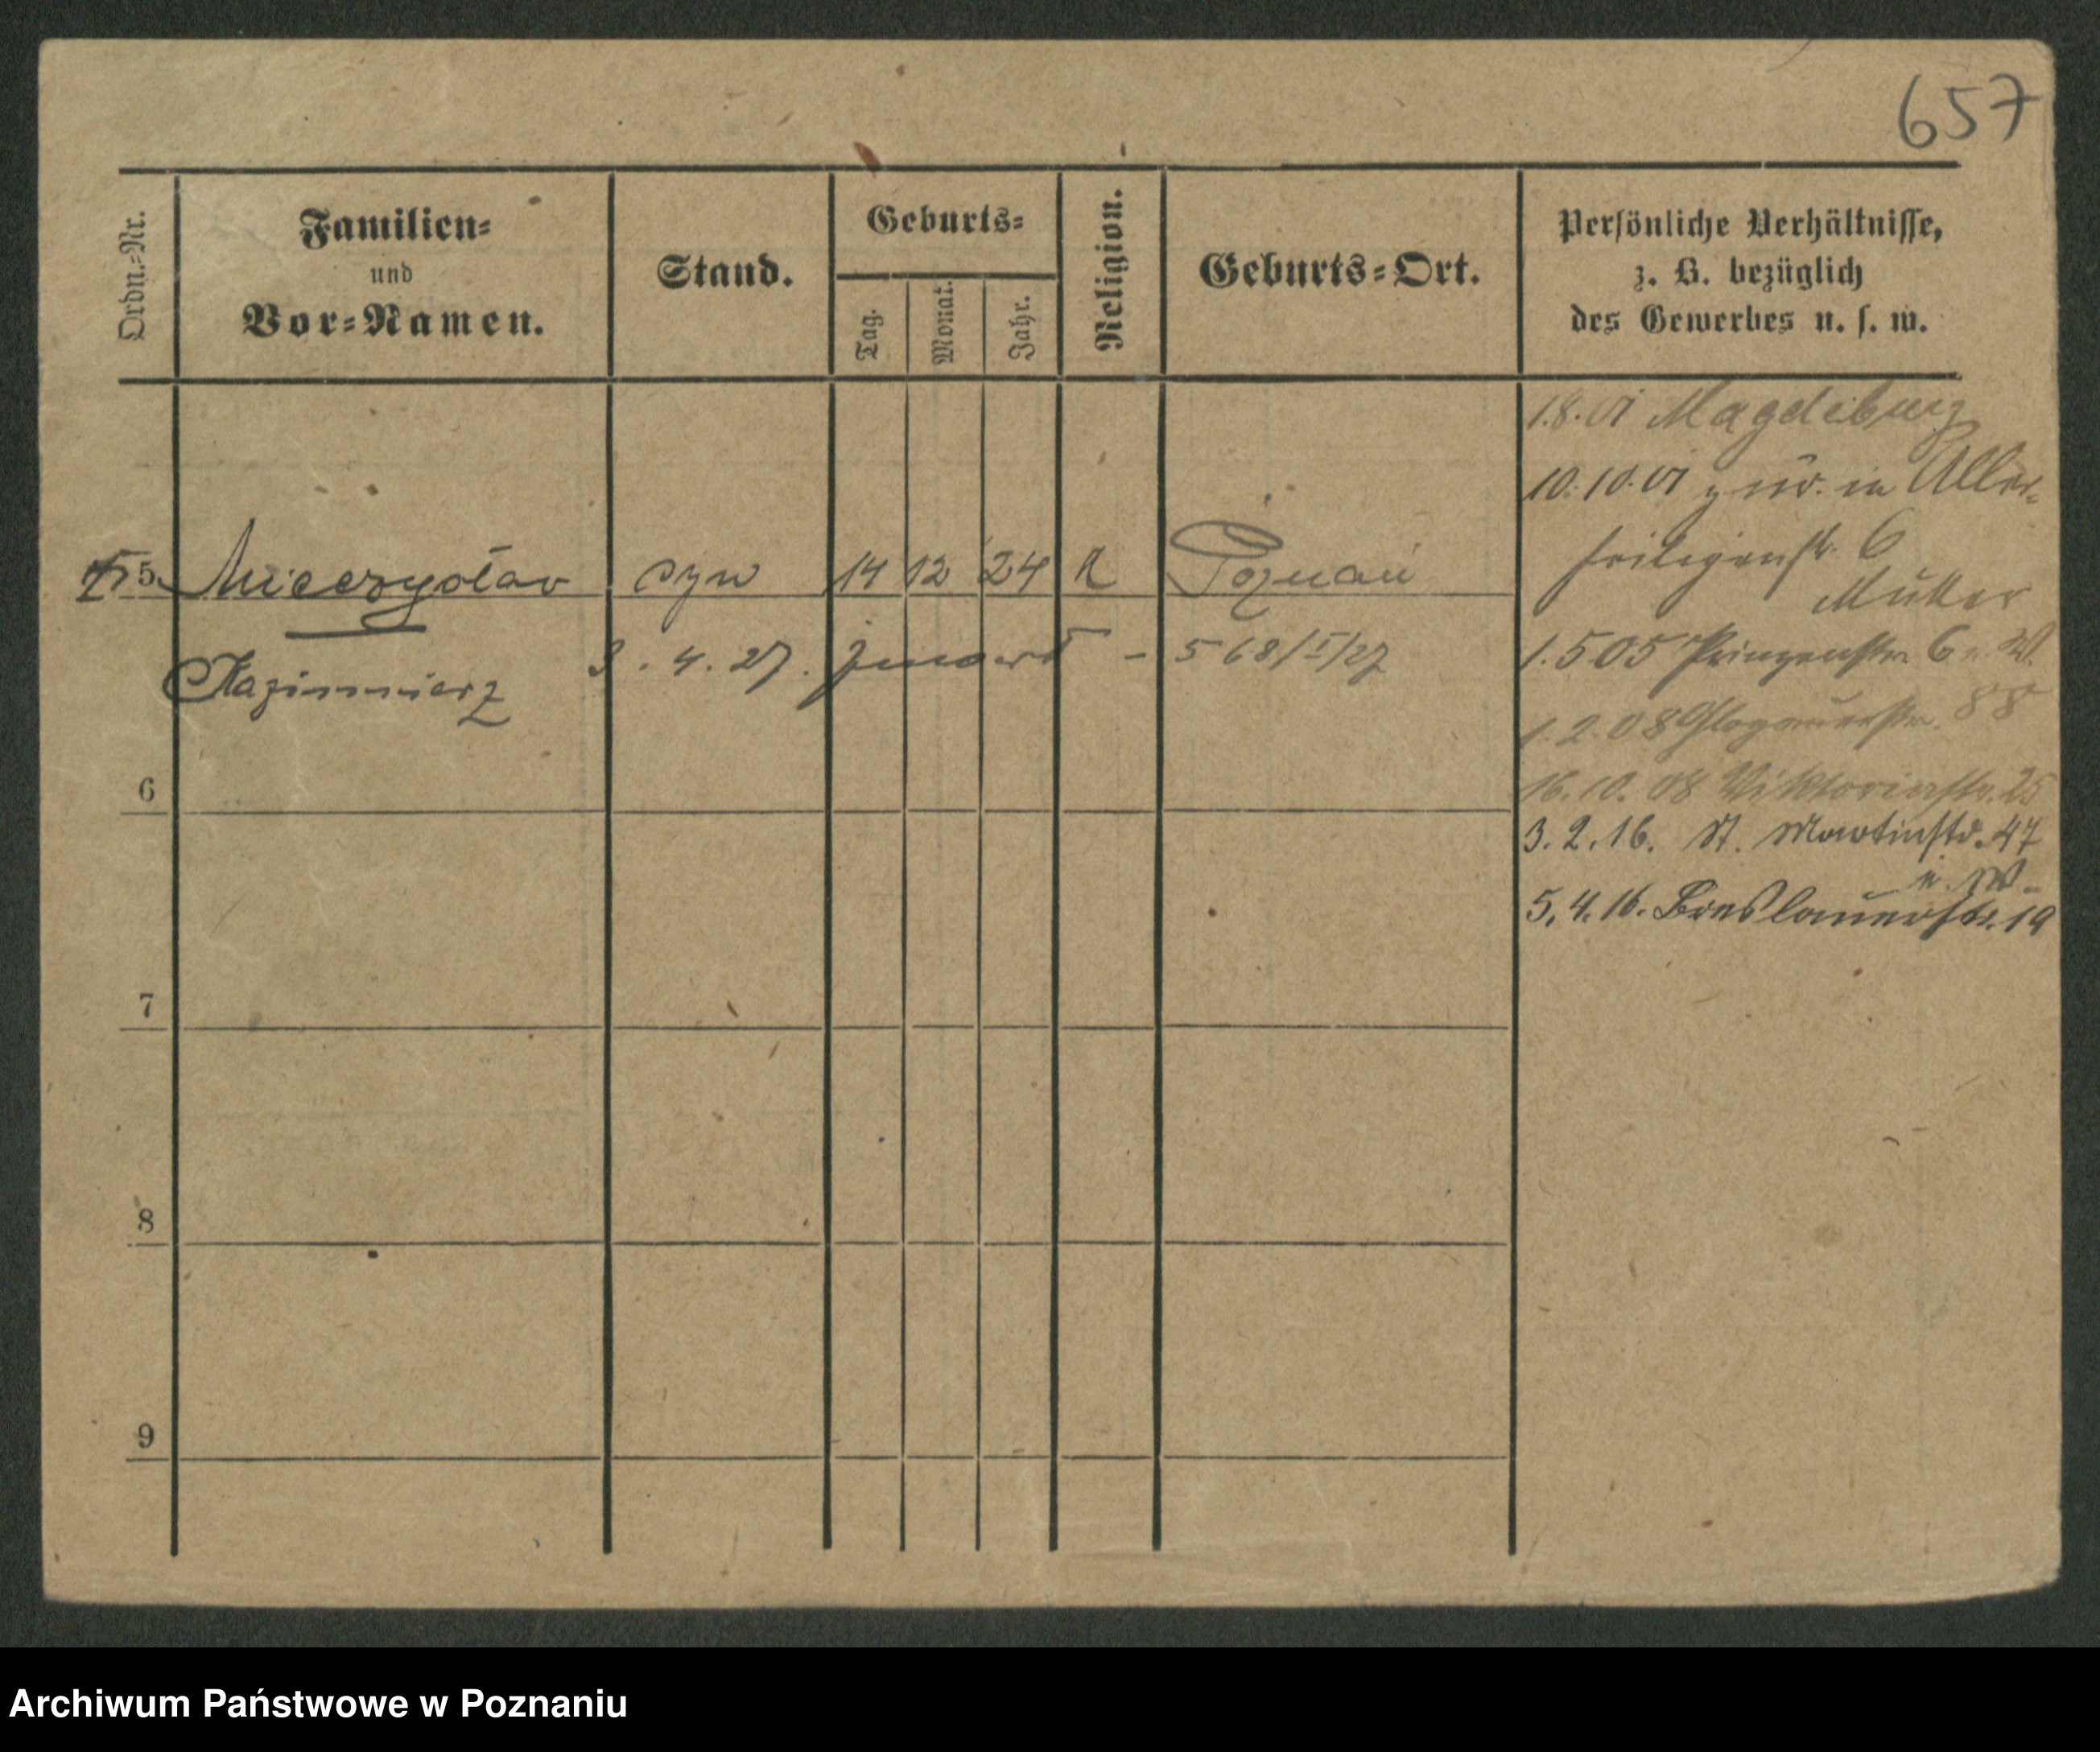 657
Ordn.-Nr.
Familien-
und
Vor-Namen.
Stand.
Geburts-
Tag.
Monat.
Jahr.
Religion.
Geburts-Ort.
Persönliche Verhältnisse,
z. B. bezüglich
des Gewerbes u. s. w.
1.8.01 Magdeburg
10.10.01 zur. in Aller-
heiligenstr. 6
Mutter
5. Mieczysław syn 14 12 24 R Poznań
Kazimierz 3.4.27. zmarł - 568/I/27
1.5 05 Prinzenstr. 6 W.
1.2.08 Glogauerstr. 88
6
16.10.08 Viktoriastr. 25
3.2.16. St. Martinstr. 47
u. W.
5.4.16. Breslauerstr. 19
7
8
9
Archiwum Państwowe w Poznaniu